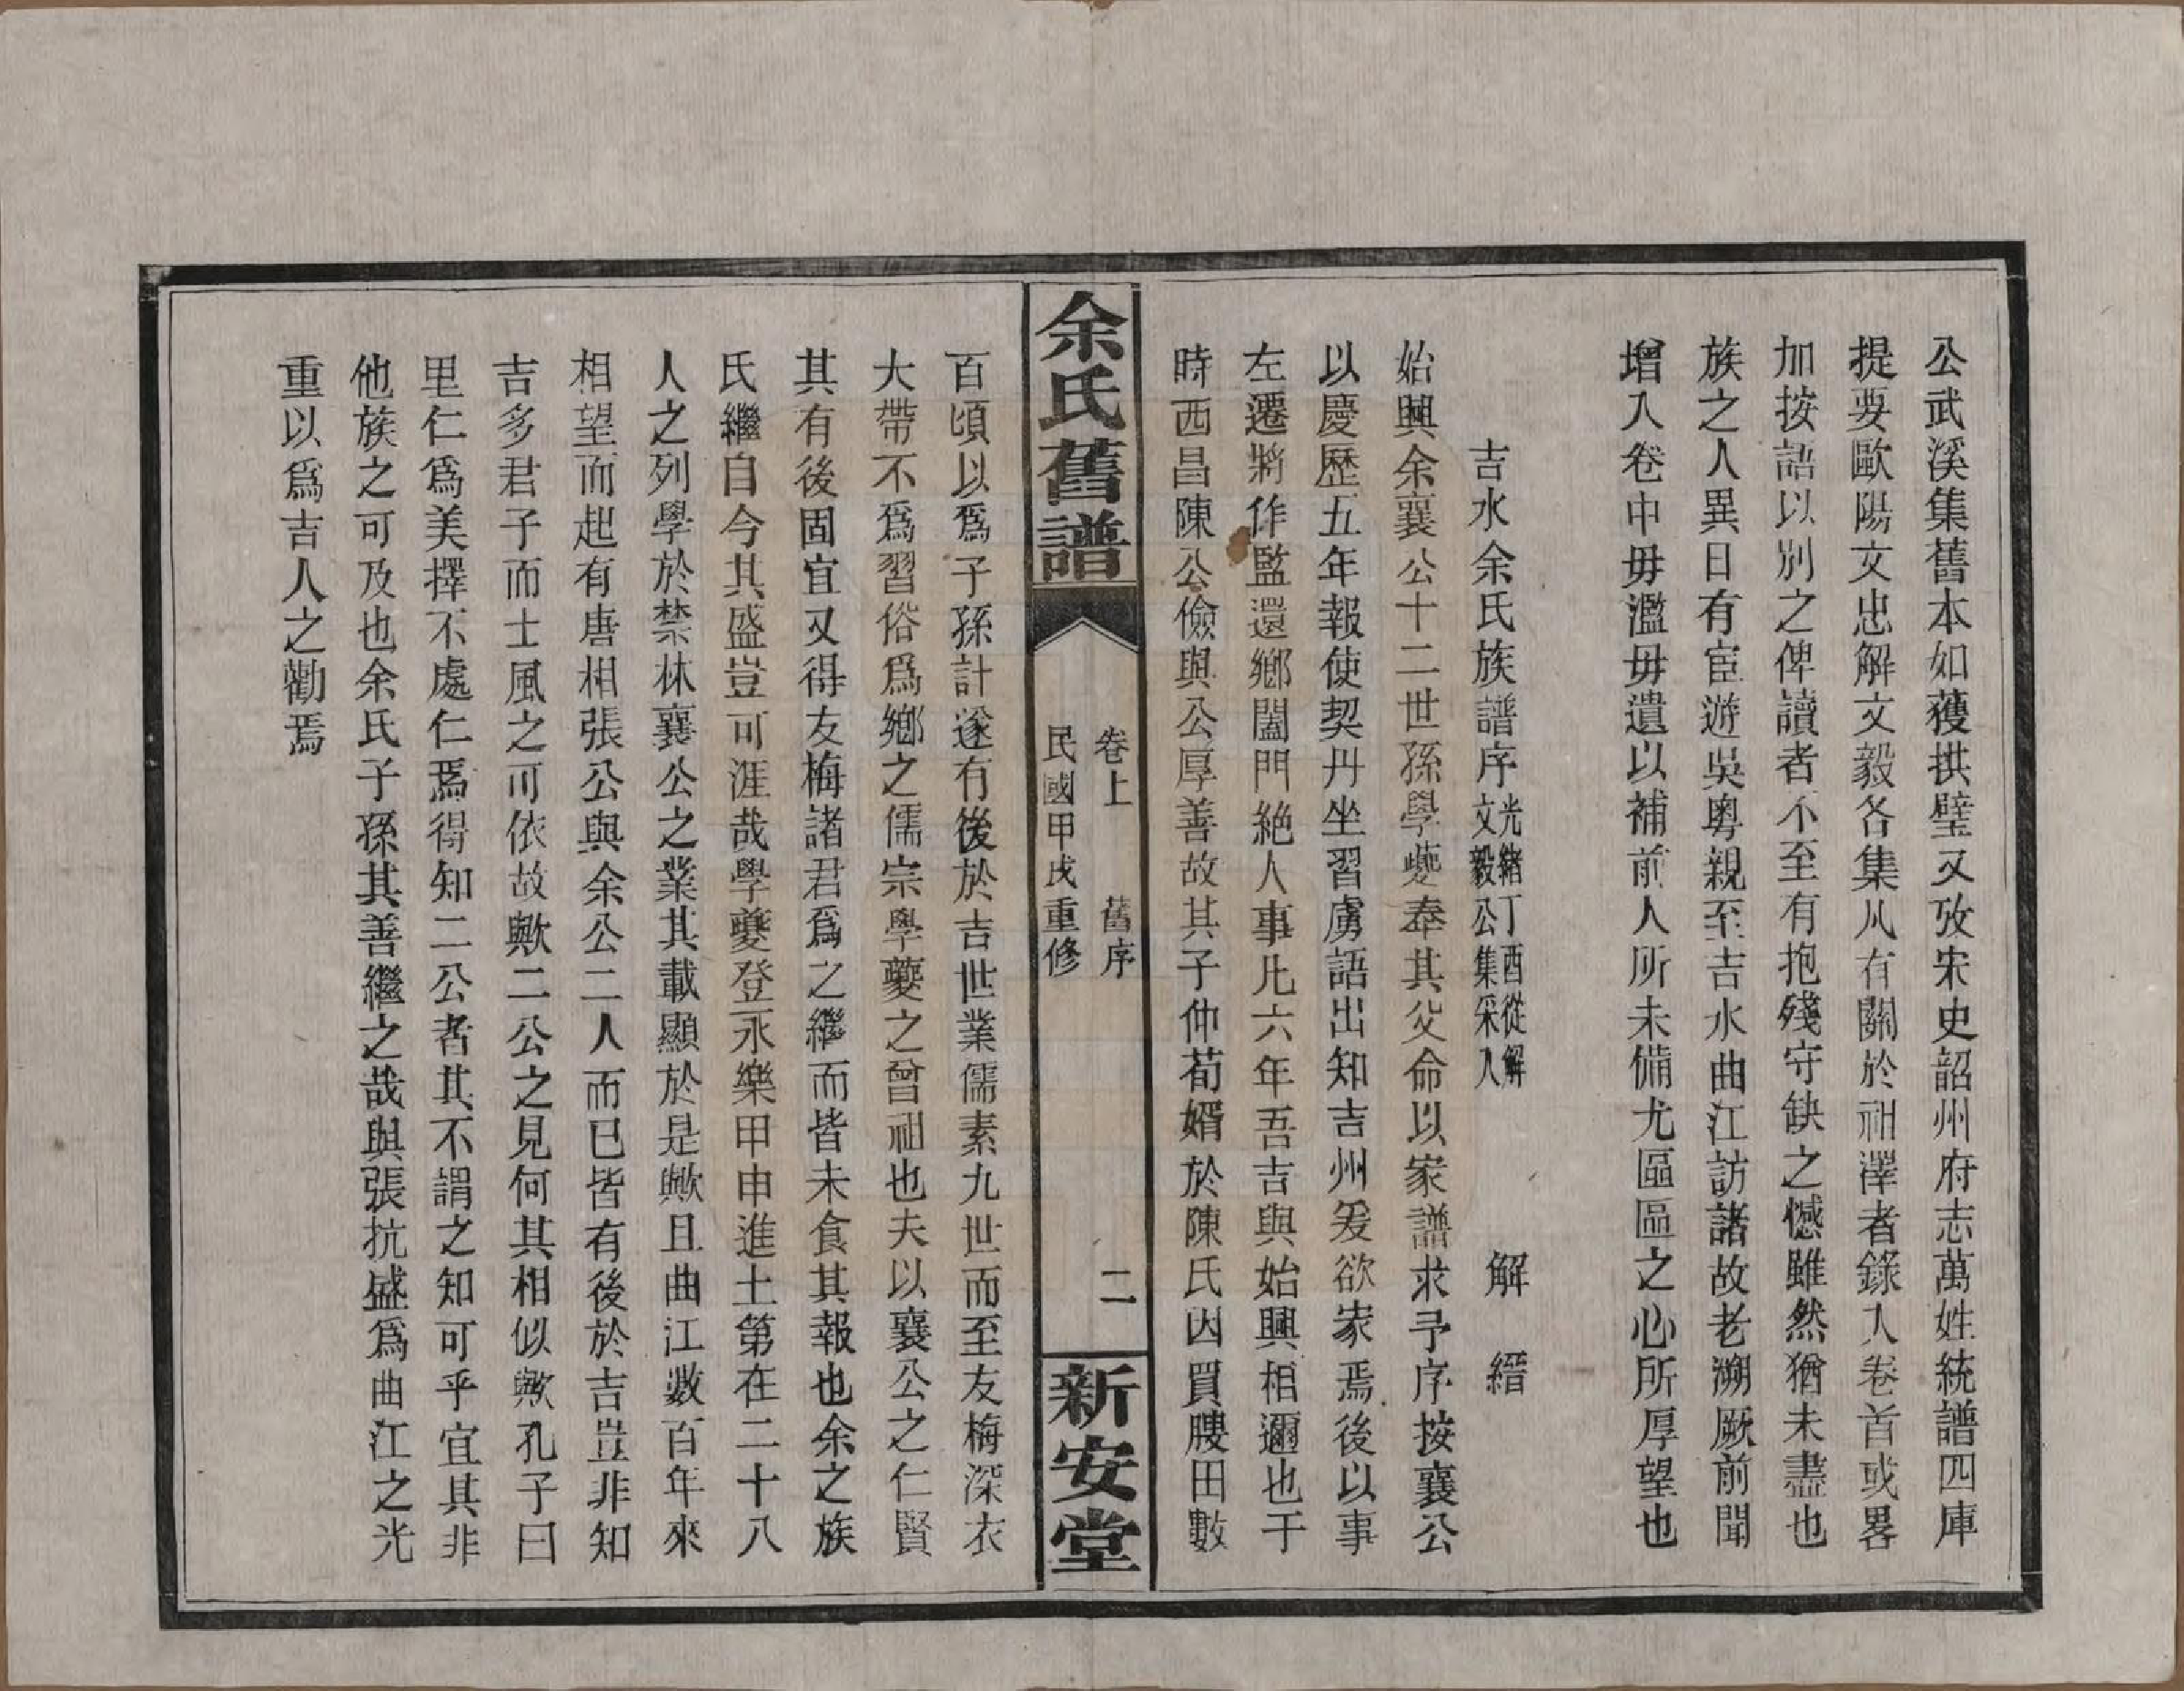 公武溪集舊本如獲拱璧又攷宋史韶州府志萬姓統譜四庫
提要歐陽文忠解文毅各集凡有關於祖澤者錄入卷首或畧
加按語以別之俾讀者不至有抱殘守缺之憾雖然猶未盡也
族之人異日有宦遊吳粵親至吉水曲江訪諸故老溯厥前聞
增入卷中毋濫毋遺以補前人所未備尤區區之心所厚望也
吉水余氏族譜序 光緒丁酉從解文毅公集采入 解縉
始興余襄公十二世孫學夔奉其父命以家譜求予序按襄公
以慶歷五年報使契丹坐習虜語出知吉州爰欲家焉後以事
左遷將作監還鄉闔門絶人事凡六年吾吉與始興相邇也于
時西昌陳公儉與公厚善故其子仲荀婿於陳氏因買腴田數
余氏舊譜
卷上 舊序 二
民國甲戌重修
新安堂
百頃以爲子孫計遂有後於吉世業儒素九世而至友梅深衣
大帶不爲習俗爲鄉之儒宗學夔之曾祖也夫以襄公之仁賢
其有後固宜又得友梅諸君爲之繼而皆未食其報也余之族
氏繼自今其盛豈可涯哉學夔登永樂甲申進士第在二十八
人之列學於禁林襄公之業其載顯於是歟且曲江數百年來
相望而起有唐相張公與余公二人而已皆有後於吉豈非知
吉多君子而士風之可依故歟二公之見何其相似歟孔子曰
里仁爲美擇不處仁焉得知二公者其不謂之知可乎宜其非
他族之可及也余氏子孫其善繼之哉與張抗盛爲曲江之光
重以爲吉人之勸焉